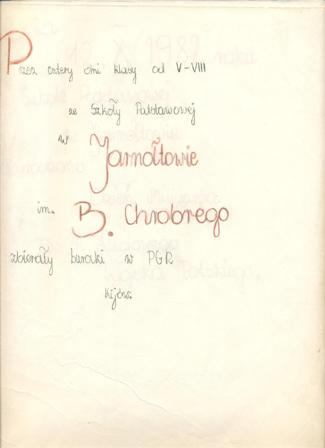 Przez cztery dni klasy od V-VIII
ze Szkoły Podstawowej
w Jarnołtowie
im. B. Chrobrego
zbierały buraki w PGR
Kijów.